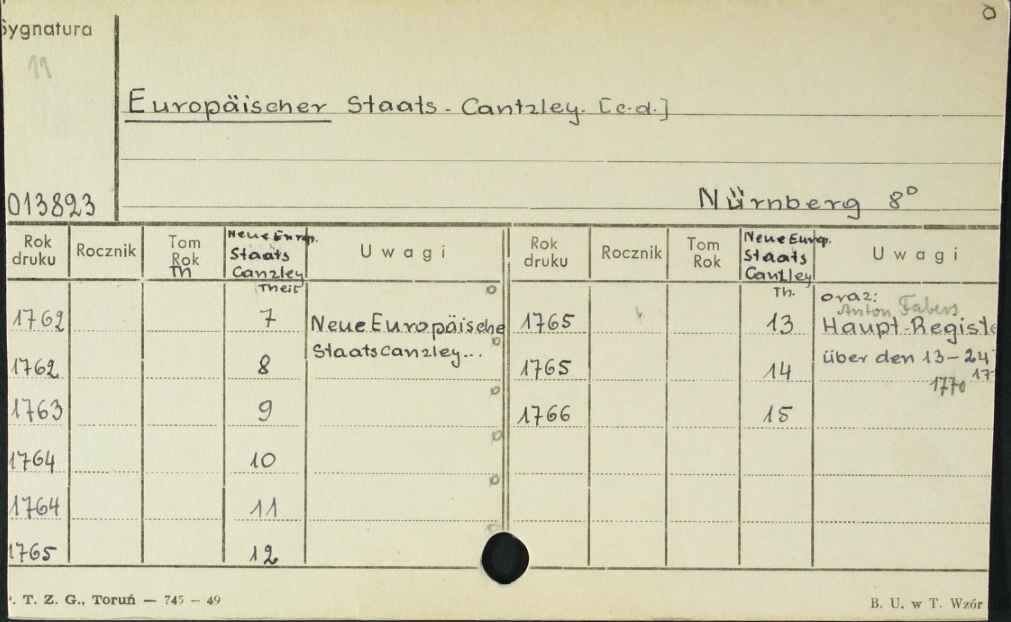 Sygnatura
11
Europäischer Staats-Cantzley. [c.d.]
013823
Nürnberg 8°
Rok druku Rocznik Tom Rok Th Neue Europ. Staats Canzley Theil Uwagi Rok druku Rocznik Tom Rok Neue Europ. Staats Cantzley Th. Uwagi
1762 7 Neue Europäische 1765 13 oraz: Anton Fabers Haupt-Registe
1762 8 Staatscanzley... 1765 14 über den 13-24
1763 9 1766 15 1770 17
1764 10
1764 11
1765 12
. T. Z. G., Toruń — 745 — 49
B. U. w T. Wzór